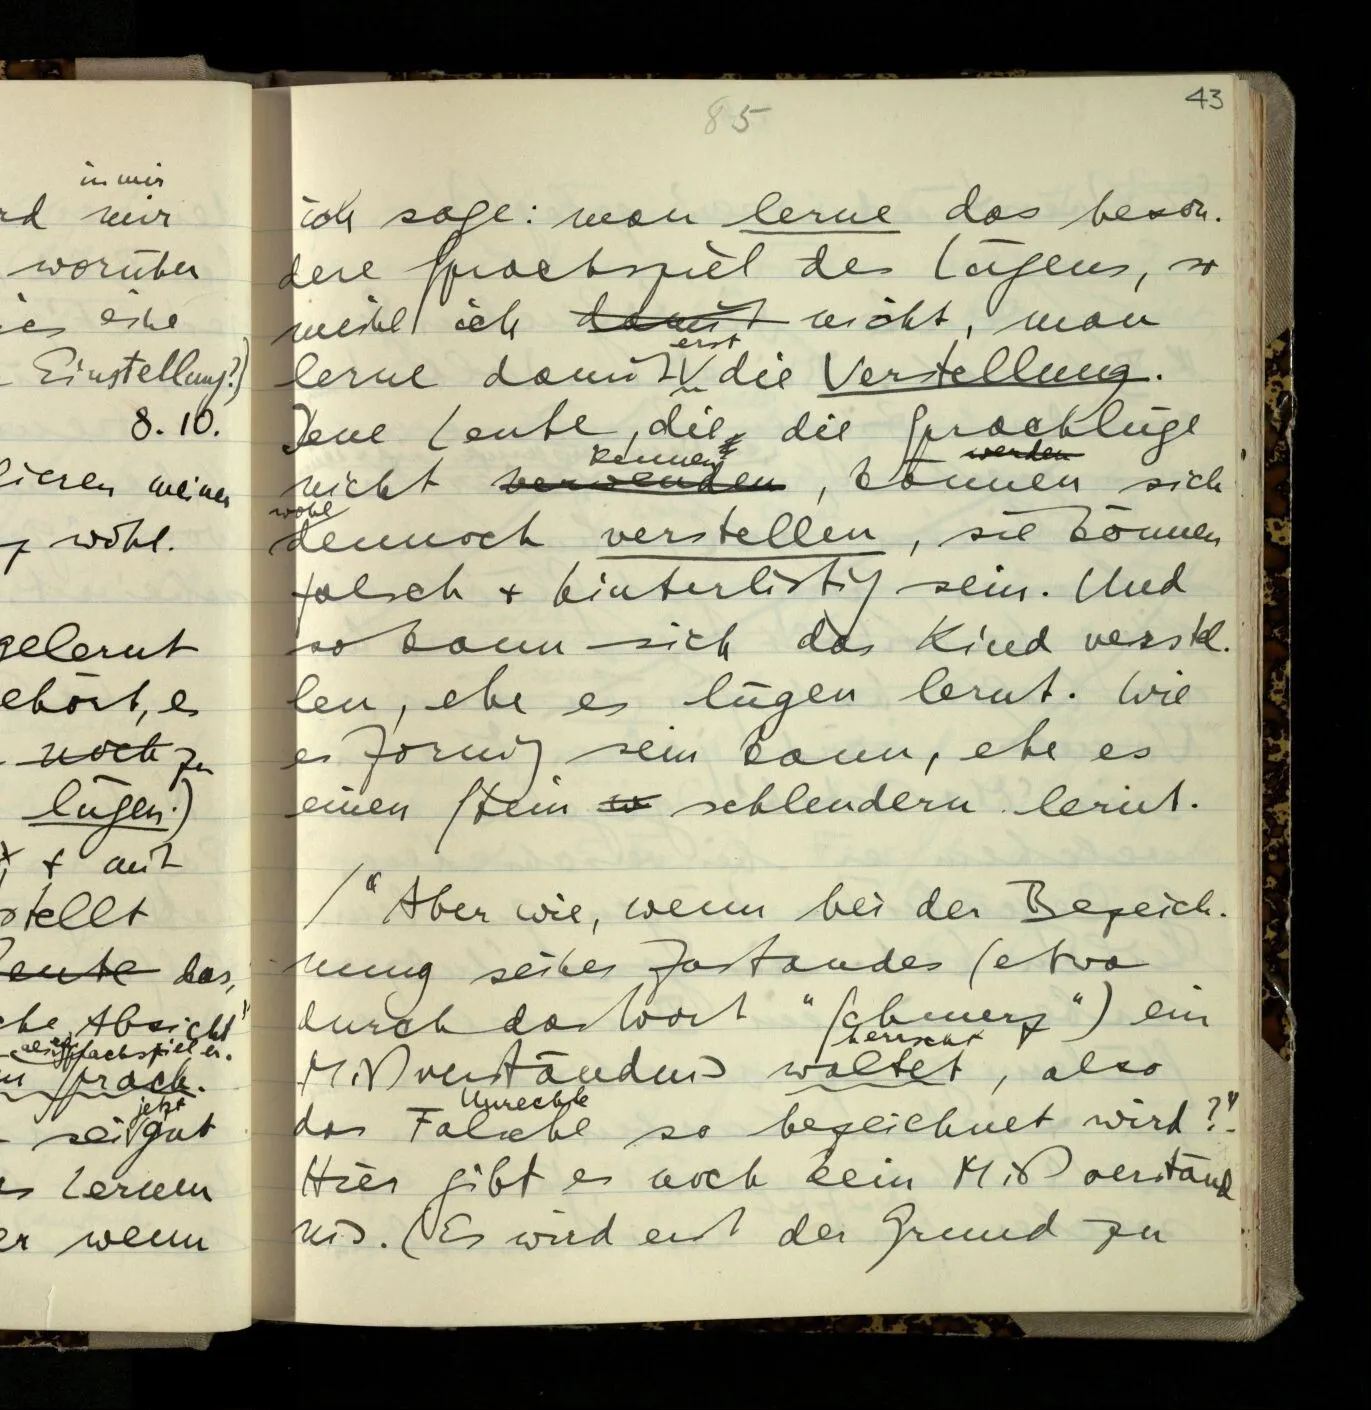 in mir
rd mir
worüber
eine
Einstellung?)
8.10.
lieren meinen
wohl.
gelernt
ehört, es
noch zu
lügen.)
+ mit
stellt
Leute das,
che Absicht"
Sprachspiel er.
Sprach.
jetzt
sei gut
es Lernen
er wenn
43
85
ich sage: man lerne das beson-
dere Sprachspiel des Lügens, so
meine ich damit nicht, man
erst
lerne damit die Verstellung.
Jene Leute, die, die Sprachlüge
kennen werden
nicht verwenden, können sich
wohl
dennoch verstellen, sie können
falsch + hinterlistig sein. Und
so kann sich das Kind verstel-
len, ehe es lügen lernt. Wie
es zornig sein kann, ehe es
einen Stein w schleudern lernt.
/ "Aber wie, wenn bei der Bezeich-
nung seines Zustandes (etwa
durch das Wort "Schmerz") ein
herrscht
Mißverständnis waltet, also
Unrechte
das Falsche so bezeichnet wird?"–
Hier gibt es noch kein Mißverständ
nis. (Es wird erst der Grund zu